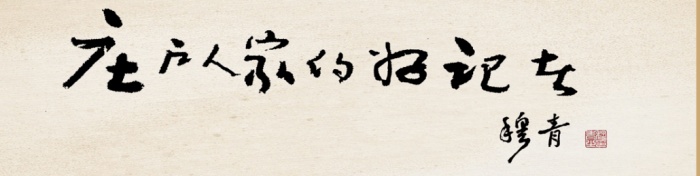 庄户人家的好记者
穆青